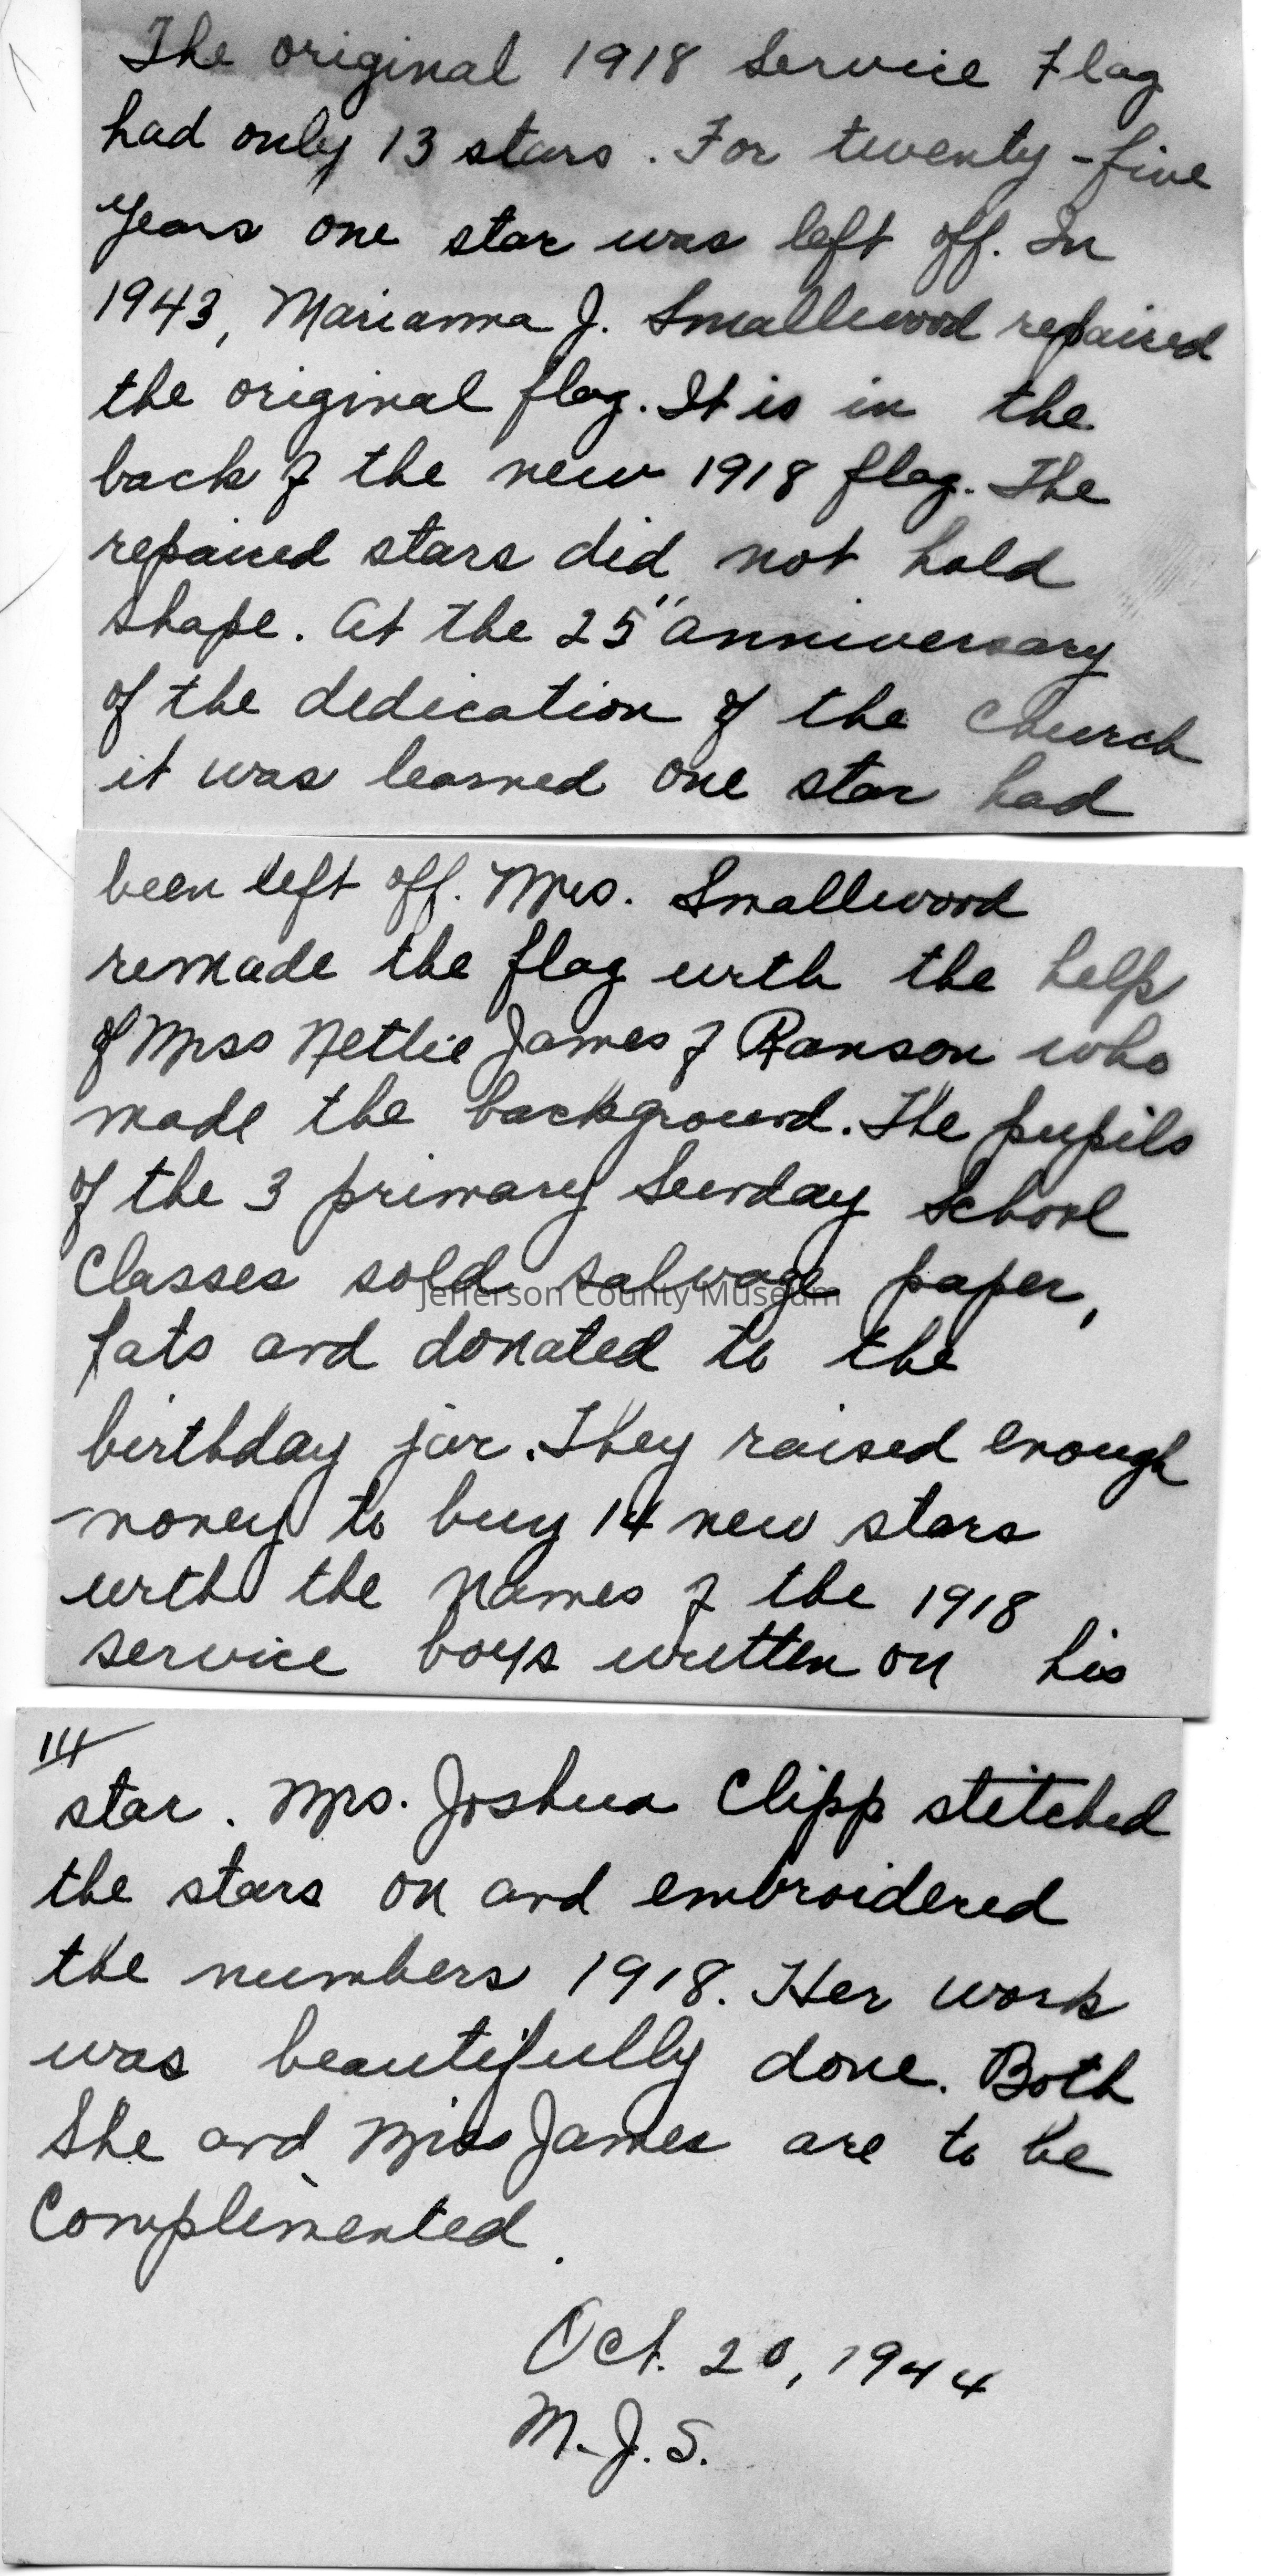 The original 1918 Service Flag
had only 13 stars. For twenty-five
years one star was left off. In
1943, Marianna J. Smallwood repaired
the original flag. It is in the
back of the new 1918 flag. The
repaired stars did not hold
shape. At the 25" anniversary
of the dedication of the Church
it was learned one star had
been left off. Mrs. Smallwood
remade the flag with the help
of Miss Nettie James of Ranson who
made the background. The pupils
of the 3 primary Sunday School
Classes sold salvage paper,
Jefferson County Museum
fats and donated to the
birthday jar. They raised enough
money to buy 14 new stars
with the names of the 1918
service boys written on his
14
star. Mrs. Joshua Clipp stitched
the stars on and embroidered
the numbers 1918. Her work
was beautifully done. Both
She and Miss James are to be
Complimented.
Oct. 20, 1944
M.J.S.